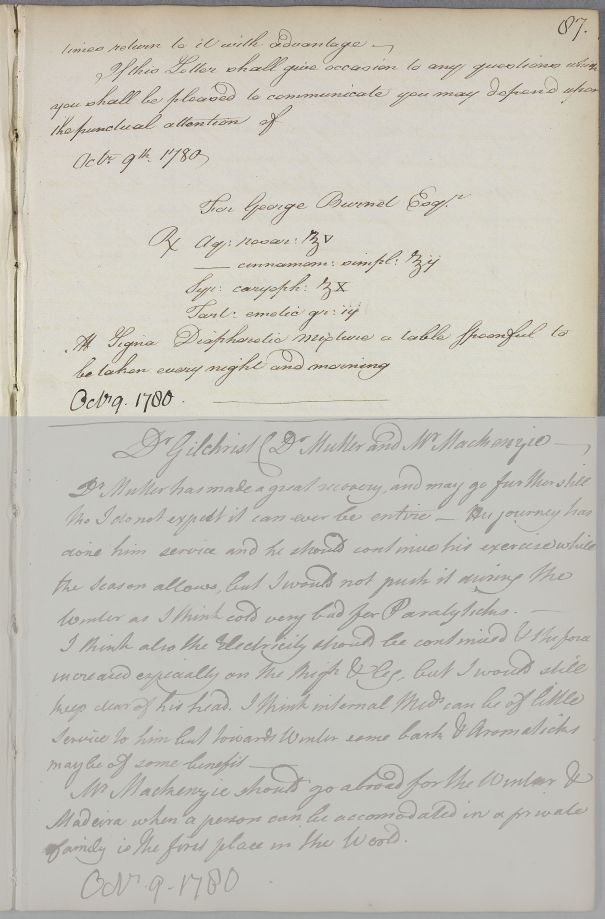 87.
times return to it with advantage —
If this Letter shall give occasion to any questions which
you shall be pleased to communicate you may depend upon
the punctual attention of
Octr 9th. 1780
For George Burnet Esqr.
℞ Aq: rosar: ℥v
— cinnamom: simpl: ℥ij
Syr: caryoph: ℥x
Tart: emetic gr: iij
M Signa Diaphoretic mixture a table spoonful to
be taken every night and morning
Octr 9. 1780.
Dr Gilchrist Dr Mutter and Mr Mackenzie —
Dr Mutter has made a great recovery, and may go further still
tho I do not expect it can ever be entire — His journey has
done him service and he should continue his exercise while
the season allows, but I would not push it during the
Winter as I think cold very bad for Paralyticks. —
I think also the Electricity should be continued & the force
increased especially on the thigh & Leg, but I would still
keep clear of his head. I think internal Meds can be of little
service to him but towards Winter some bark & Aromaticks
may be of some benefit —
Mr Mackenzie should go abroad for the Winter &
Madeira when a person can be accomodated in a private
family is the first place in the World.
Octr. 9. 1780